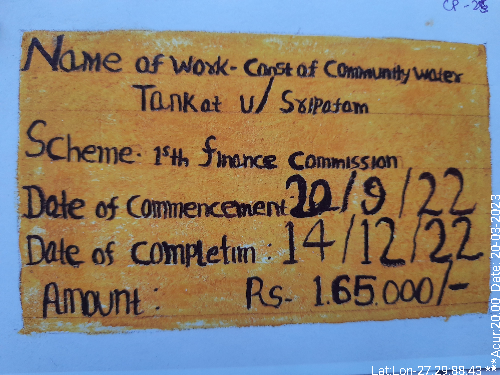 CP-28
Name of Work - Const of Community Water
Tank at U/ Sripatam
Scheme - 15th Finance Commission
Date of Commencement 20/9/22
Date of Completim : 14/12/22
Amount : Rs- 1.65.000/-
Lat:Lon-27.29,88.43 ** **Acur:20.00, Date: 20-03-2023